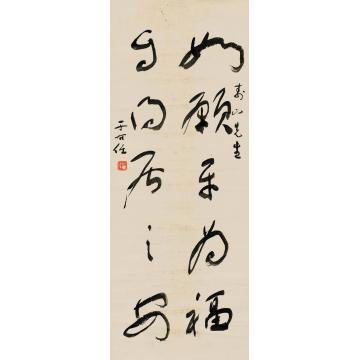 壽山先生
如願平為福
自得居之安
于右任